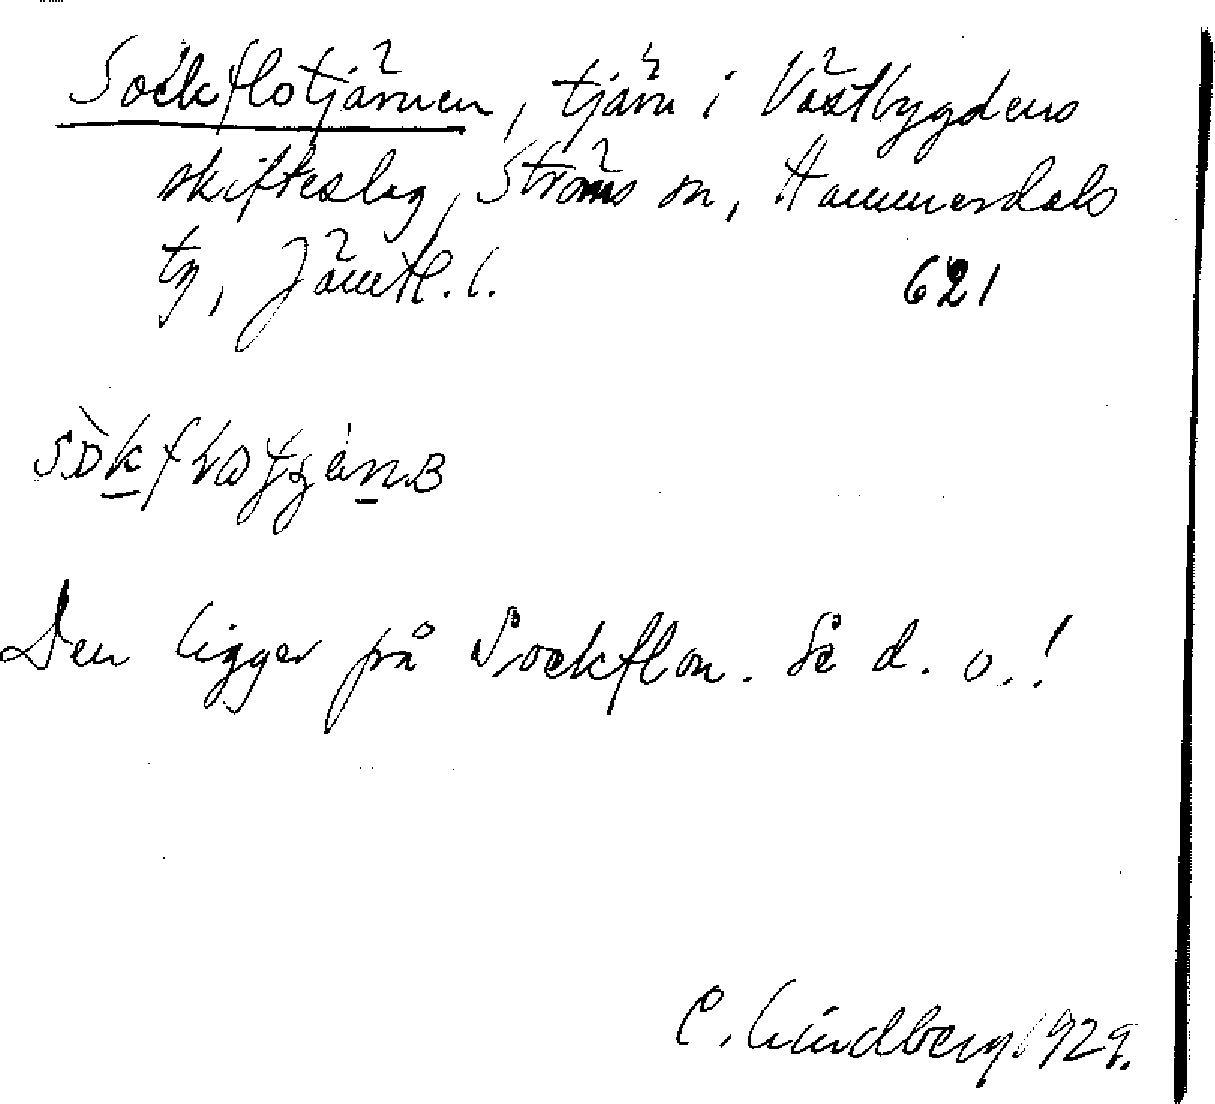 Sockflotjärnen, tjärn i Västbygdens
skifteslag, Ströms sn, Hammerdals
tg, Jämtl. l. 621
Den ligger på Sockflon. Se d. o.!
C. Lindberg 1929.